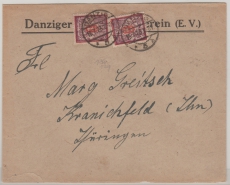 Danziger rein (E. V.)
Frl
Marg Greitsch
Kranichfeld (Ilm)
Thüringen